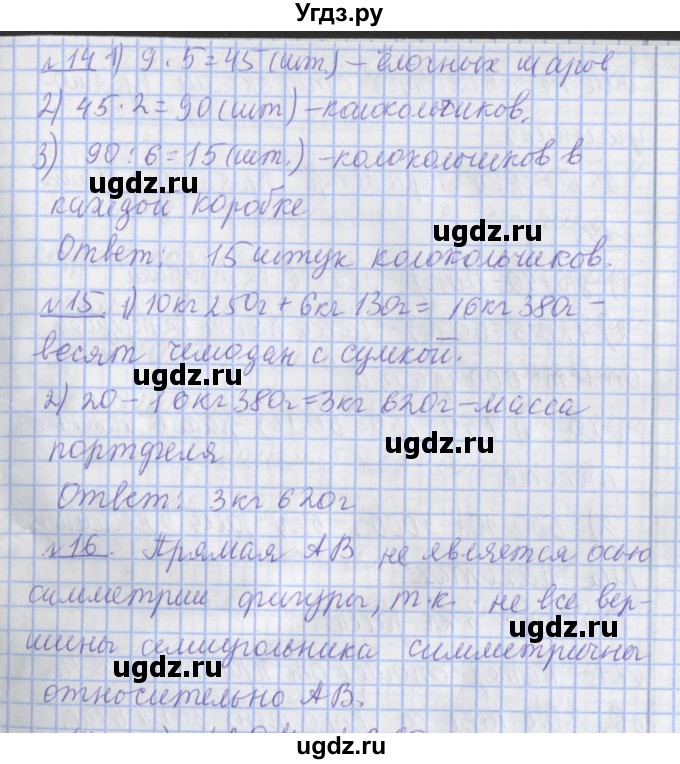 Угдз.ру
№14 1) 9 · 5 = 45 (шт) – ёлочных шаров
2) 45 · 2 = 90 (шт) – колокольчиков,
3) 90 : 6 = 15 (шт.) – колокольчиков в
ugdz.ru
каждой коробке
ugdz.ru
Ответ: 15 штук колокольчиков.
№15. 1) 10кг 250г + 6кг 130г = 16кг 380г –
весят чемодан с сумкой.
ugdz.ru
2) 20 – 16кг 380г = 3кг 620г – масса
портфеля
ugdz.ru
Ответ: 3кг 620г
№16. Прямая АВ не является осью
симметрии фигуры, т.к. не все вер-
ugdz.ru
шины семиугольника симметричны
ugdz.ru
относительно АВ.
ugdz.ru